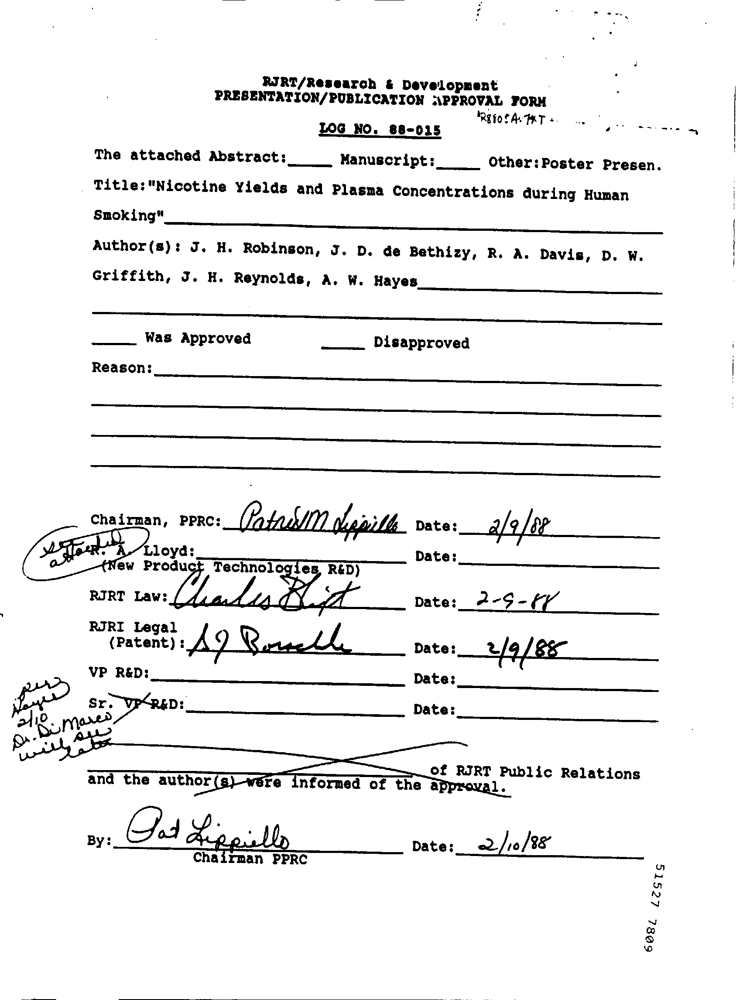 RJRT/Research & Development
PRESENTATION/PUBLICATION APPROVAL FORM
LOG NO. 88-015
The attached Abstract:_____ Manuscript:_____ Other:Poster Presen.
Title:"Nicotine Yields and Plasma Concentrations during Human
Smoking"
Author(s): J. H. Robinson, J. D. de Bethizy, R. A. Davis, D. W.
Griffith, J. H. Reynolds, A. W. Hayes
_____ Was Approved _____ Disapproved
Reason:
Chairman, PPRC: Patrick M Lippiello Date: 2/9/88
see attached
R. A. Lloyd: Date:
(New Product Technologies R&D)
RJRT Law: Charles Date: 2-9-88
RJRI Legal
(Patent): Date: 2/9/88
VP R&D: Date:
Sr. VP R&D: Date:
per
Hayes
2/10
Dr. Di Marco
will see
later
of RJRT Public Relations
and the author(s) were informed of the approval.
By: Pat Lippiello Date: 2/10/88
Chairman PPRC
51527 7809